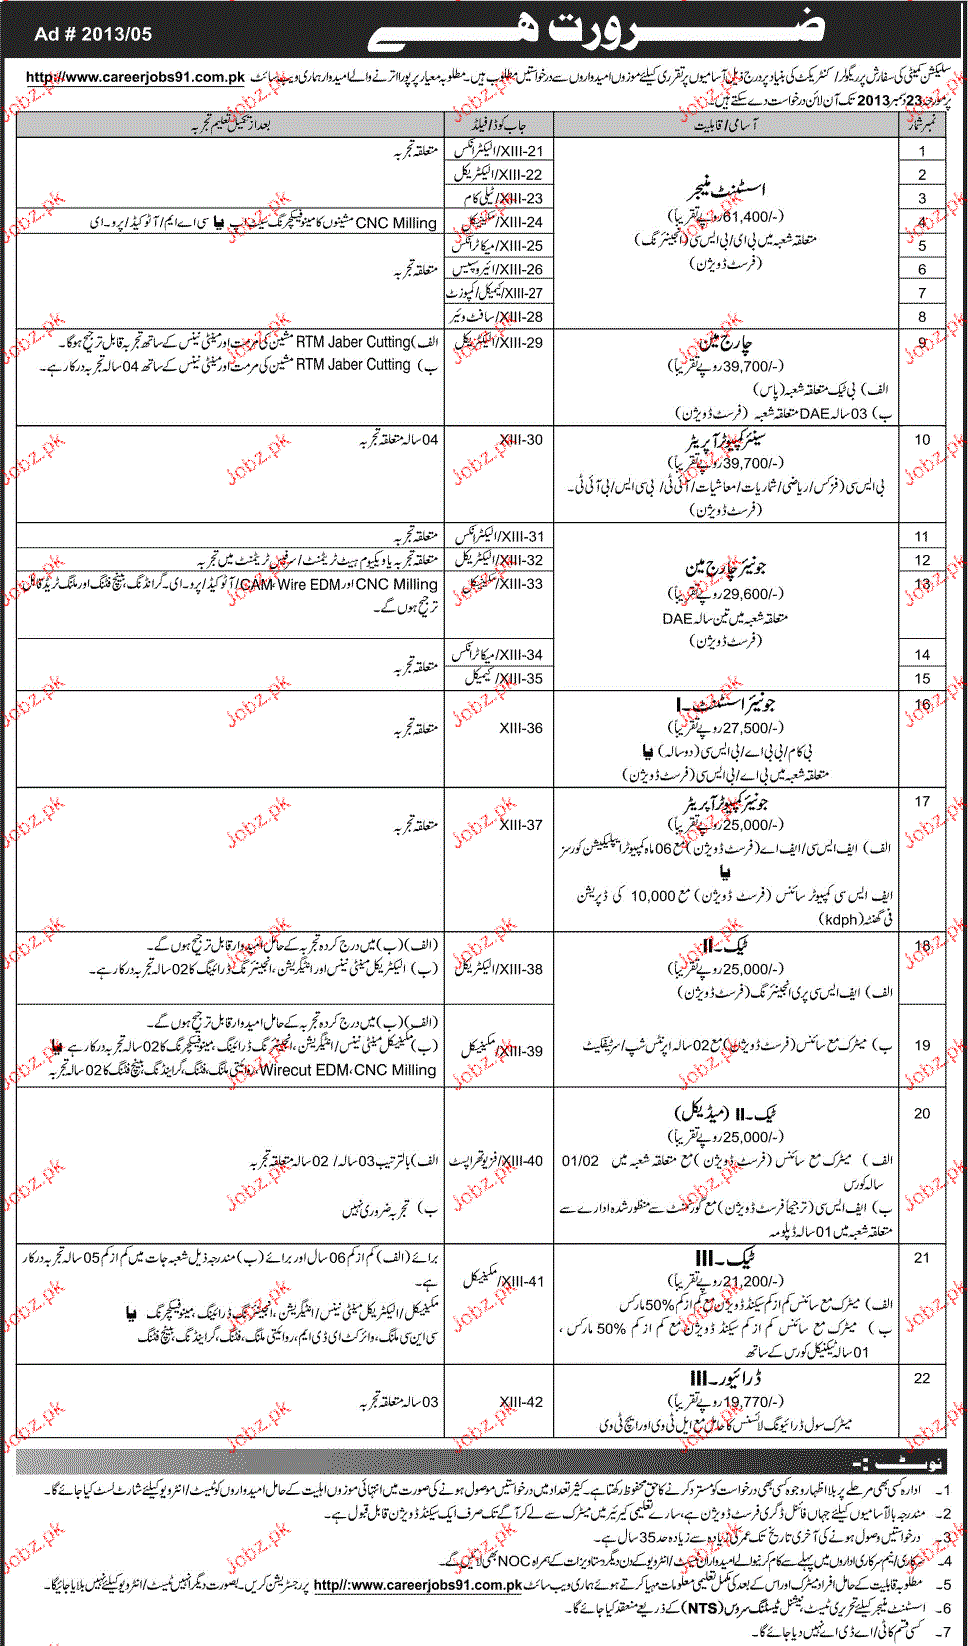 ضرورت ہے
Ad # 2013/05
سلیکشن کمیٹی کی سفارش پر ریگولر/کنٹریکٹ کی بنیاد پر درج ذیل آسامیوں پر تقرری کیلئے موزوں امیدواروں سے درخواستیں مطلوب ہیں۔ مطلوبہ معیار پر پورا اترنے والے امیدوار ہماری ویب سائٹ http://www.careerjobs91.com.pk
پر مورخہ 23 دسمبر 2013 تک آن لائن درخواست دے سکتے ہیں۔
نمبر شمار آسامی/قابلیت جاب کوڈ/فیلڈ بعد از تکمیل تعلیم تجربہ
1 XIII-21/الیکٹرانکس متعلقہ تجربہ
2 XIII-22/الیکٹریکل
3 XIII-23/ٹیلی کام
اسسٹنٹ منیجر
(61,400/- روپے تقریباً)
متعلقہ شعبہ میں بی ای/بی ایس سی (انجینئرنگ)
(فرسٹ ڈویژن)
4 XIII-24/مکینیکل CNC Milling مشینوں کا مینوفیکچرنگ سیٹ اپ یا سی اے ایم/آٹو کیڈ/پرو۔ای
5 XIII-25/میکاٹرانکس
6 XIII-26/ائیروسپیس متعلقہ تجربہ
7 XIII-27/کیمیکل/کمپوزٹ
8 XIII-28/سافٹ وئیر
9 چارج مین XIII-29/الیکٹریکل الف) RTM Jaber Cutting مشین کی مرمت اور مینٹی نینس کے ساتھ تجربہ قابل ترجیح ہوگا۔
(39,700/- روپے تقریباً) ب) RTM Jaber Cutting مشین کی مرمت اور مینٹی نینس کے ساتھ 04 سالہ تجربہ درکار ہے۔
الف) بی ٹیک متعلقہ شعبہ (پاس)
ب) 03 سالہ DAE متعلقہ شعبہ (فرسٹ ڈویژن)
10 سینئر کمپیوٹر آپریٹر XIII-30 04 سالہ متعلقہ تجربہ
(39,700/- روپے تقریباً)
بی ایس سی (فزکس/ریاضی/شماریات/معاشیات/آئی ٹی/بی سی ایس/بی آئی ٹی۔
(فرسٹ ڈویژن)
11 XIII-31/الیکٹرانکس متعلقہ تجربہ
12 XIII-32/الیکٹریکل متعلقہ تجربہ یا ویکیوم ہیٹ ٹریٹمنٹ/سرفیس ٹریٹمنٹ میں تجربہ
13 XIII-33/مکینیکل CNC Milling اور CAM، Wire EDM/آٹو کیڈ/پرو۔ای۔ گرائنڈنگ، بینچ فٹنگ اور ملنگ ٹریڈ قابل
ترجیح ہوں گے۔
جونیئر چارج مین
(29,600/- روپے تقریباً)
متعلقہ شعبہ میں تین سالہ DAE
(فرسٹ ڈویژن)
14 XIII-34/میکاٹرانکس متعلقہ تجربہ
15 XIII-35/کیمیکل
16 جونیئر اسسٹنٹ۔I
(27,500/- روپے تقریباً) XIII-36 متعلقہ تجربہ
بی کام/بی بی اے/بی ایس سی (دو سالہ) یا
متعلقہ شعبہ میں بی اے/بی ایس سی (فرسٹ ڈویژن)
17 جونیئر کمپیوٹر آپریٹر
(25,000/- روپے تقریباً) XIII-37 متعلقہ تجربہ
الف) ایف ایس سی/ایف اے (فرسٹ ڈویژن) مع 06 ماہ کمپیوٹر ایپلیکیشن کورسز
یا
ایف ایس سی کمپیوٹر سائنس (فرسٹ ڈویژن) مع 10,000 کی ڈپریشن
فی گھنٹہ (kdph)
18 ٹیک۔II (الف) (ب) میں درج کردہ تجربہ کے حامل امیدوار قابل ترجیح ہوں گے۔
(25,000/- روپے تقریباً) XIII-38/الیکٹریکل (ب) الیکٹریکل مینٹی نینس اور انٹیگریشن، انجینئرنگ ڈرائینگ کا 02 سالہ تجربہ درکار ہے۔
الف) ایف ایس سی پری انجینئرنگ (فرسٹ ڈویژن)
(الف) (ب) میں درج کردہ تجربہ کے حامل امیدوار قابل ترجیح ہوں گے۔
19 ب) میٹرک مع سائنس (فرسٹ ڈویژن) مع 02 سالہ اپرنٹس شپ/سرٹیفکیٹ XIII-39/مکینیکل (ب) مکینیکل مینٹی نینس/انٹیگریشن، انجینئرنگ ڈرائینگ، مینوفیکچرنگ کا 02 سالہ تجربہ درکار ہے یا
Wirecut EDM، CNC Milling، روایتی ملنگ، فٹنگ، گرائنڈنگ، بینچ فٹنگ کا 02 سالہ تجربہ
20 ٹیک۔II (میڈیکل)
(25,000/- روپے تقریباً)
الف) میٹرک مع سائنس (فرسٹ ڈویژن) مع متعلقہ شعبہ میں 01/02 XIII-40/فزیوتھراپسٹ الف) بالترتیب 03 سالہ/02 سالہ متعلقہ تجربہ
سالہ کورس
ب) ایف ایس سی (ترجیحاً فرسٹ ڈویژن) مع گورنمنٹ سے منظور شدہ ادارے سے ب) تجربہ ضروری نہیں
متعلقہ شعبہ میں 01 سالہ ڈپلومہ
21 ٹیک۔III برائے (الف) کم از کم 06 سال اور برائے (ب) مندرجہ ذیل شعبہ جات میں کم از کم 05 سالہ تجربہ درکار
(21,200/- روپے تقریباً) XIII-41/مکینیکل ہے۔
الف) میٹرک مع سائنس کم از کم سیکنڈ ڈویژن مع کم از کم 50% مارکس مکینیکل/الیکٹریکل مینٹی نینس/انٹیگریشن، انجینئرنگ ڈرائینگ، مینوفیکچرنگ یا
ب) میٹرک مع سائنس کم از کم سیکنڈ ڈویژن مع کم از کم 50% مارکس، سی این سی ملنگ، وائرکٹ ای ڈی ایم، روایتی ملنگ، فٹنگ، گرائنڈنگ، بینچ فٹنگ
01 سالہ ٹیکنیکل کورس کے ساتھ
22 ڈرائیور۔III
(19,770/- روپے تقریباً) XIII-42 03 سالہ متعلقہ تجربہ
میٹرک سول ڈرائیونگ لائسنس کا حامل مع ایل ٹی وی اور ایچ ٹی وی
نوٹ :-
1۔ ادارہ کسی بھی مرحلے پر بلا اظہار وجوہ کسی بھی درخواست کو مسترد کرنے کا حق محفوظ رکھتا ہے۔ کثیر تعداد میں درخواستیں موصول ہونے کی صورت میں انتہائی موزوں اہلیت کے حامل امیدواروں کو ٹیسٹ/انٹرویو کیلئے شارٹ لسٹ کیا جائے گا۔
2۔ مندرجہ بالا آسامیوں کیلئے جہاں فائنل ڈگری فرسٹ ڈویژن ہے، سارے تعلیمی کیرئیر میں میٹرک سے لے کر آگے تک صرف ایک سیکنڈ ڈویژن قابل قبول ہے۔
3۔ درخواستیں وصول ہونے کی آخری تاریخ تک عمر کی زیادہ سے زیادہ حد 35 سال ہے۔
4۔ سرکاری/نیم سرکاری اداروں میں پہلے سے کام کرنیوالے امیدواران ٹیسٹ/انٹرویو کے دن دیگر دستاویزات کے ہمراہ NOC بھی لائیں گے۔
5۔ مطلوبہ قابلیت کے حامل افراد میٹرک اور اس کے بعد کی مکمل تعلیمی معلومات مہیا کرتے ہوئے ہماری ویب سائٹ http//:www.careerjobs91.com.pk پر رجسٹریشن کریں۔ بصورت دیگر انہیں ٹیسٹ/انٹرویو کیلئے نہیں بلایا جائیگا۔
6۔ اسسٹنٹ منیجر کیلئے تحریری ٹیسٹ، نیشنل ٹیسٹنگ سروس (NTS) کے ذریعے منعقد کیا جائے گا۔
7۔ کسی قسم کا ٹی/اے ڈی اے نہیں دیا جائے گا۔